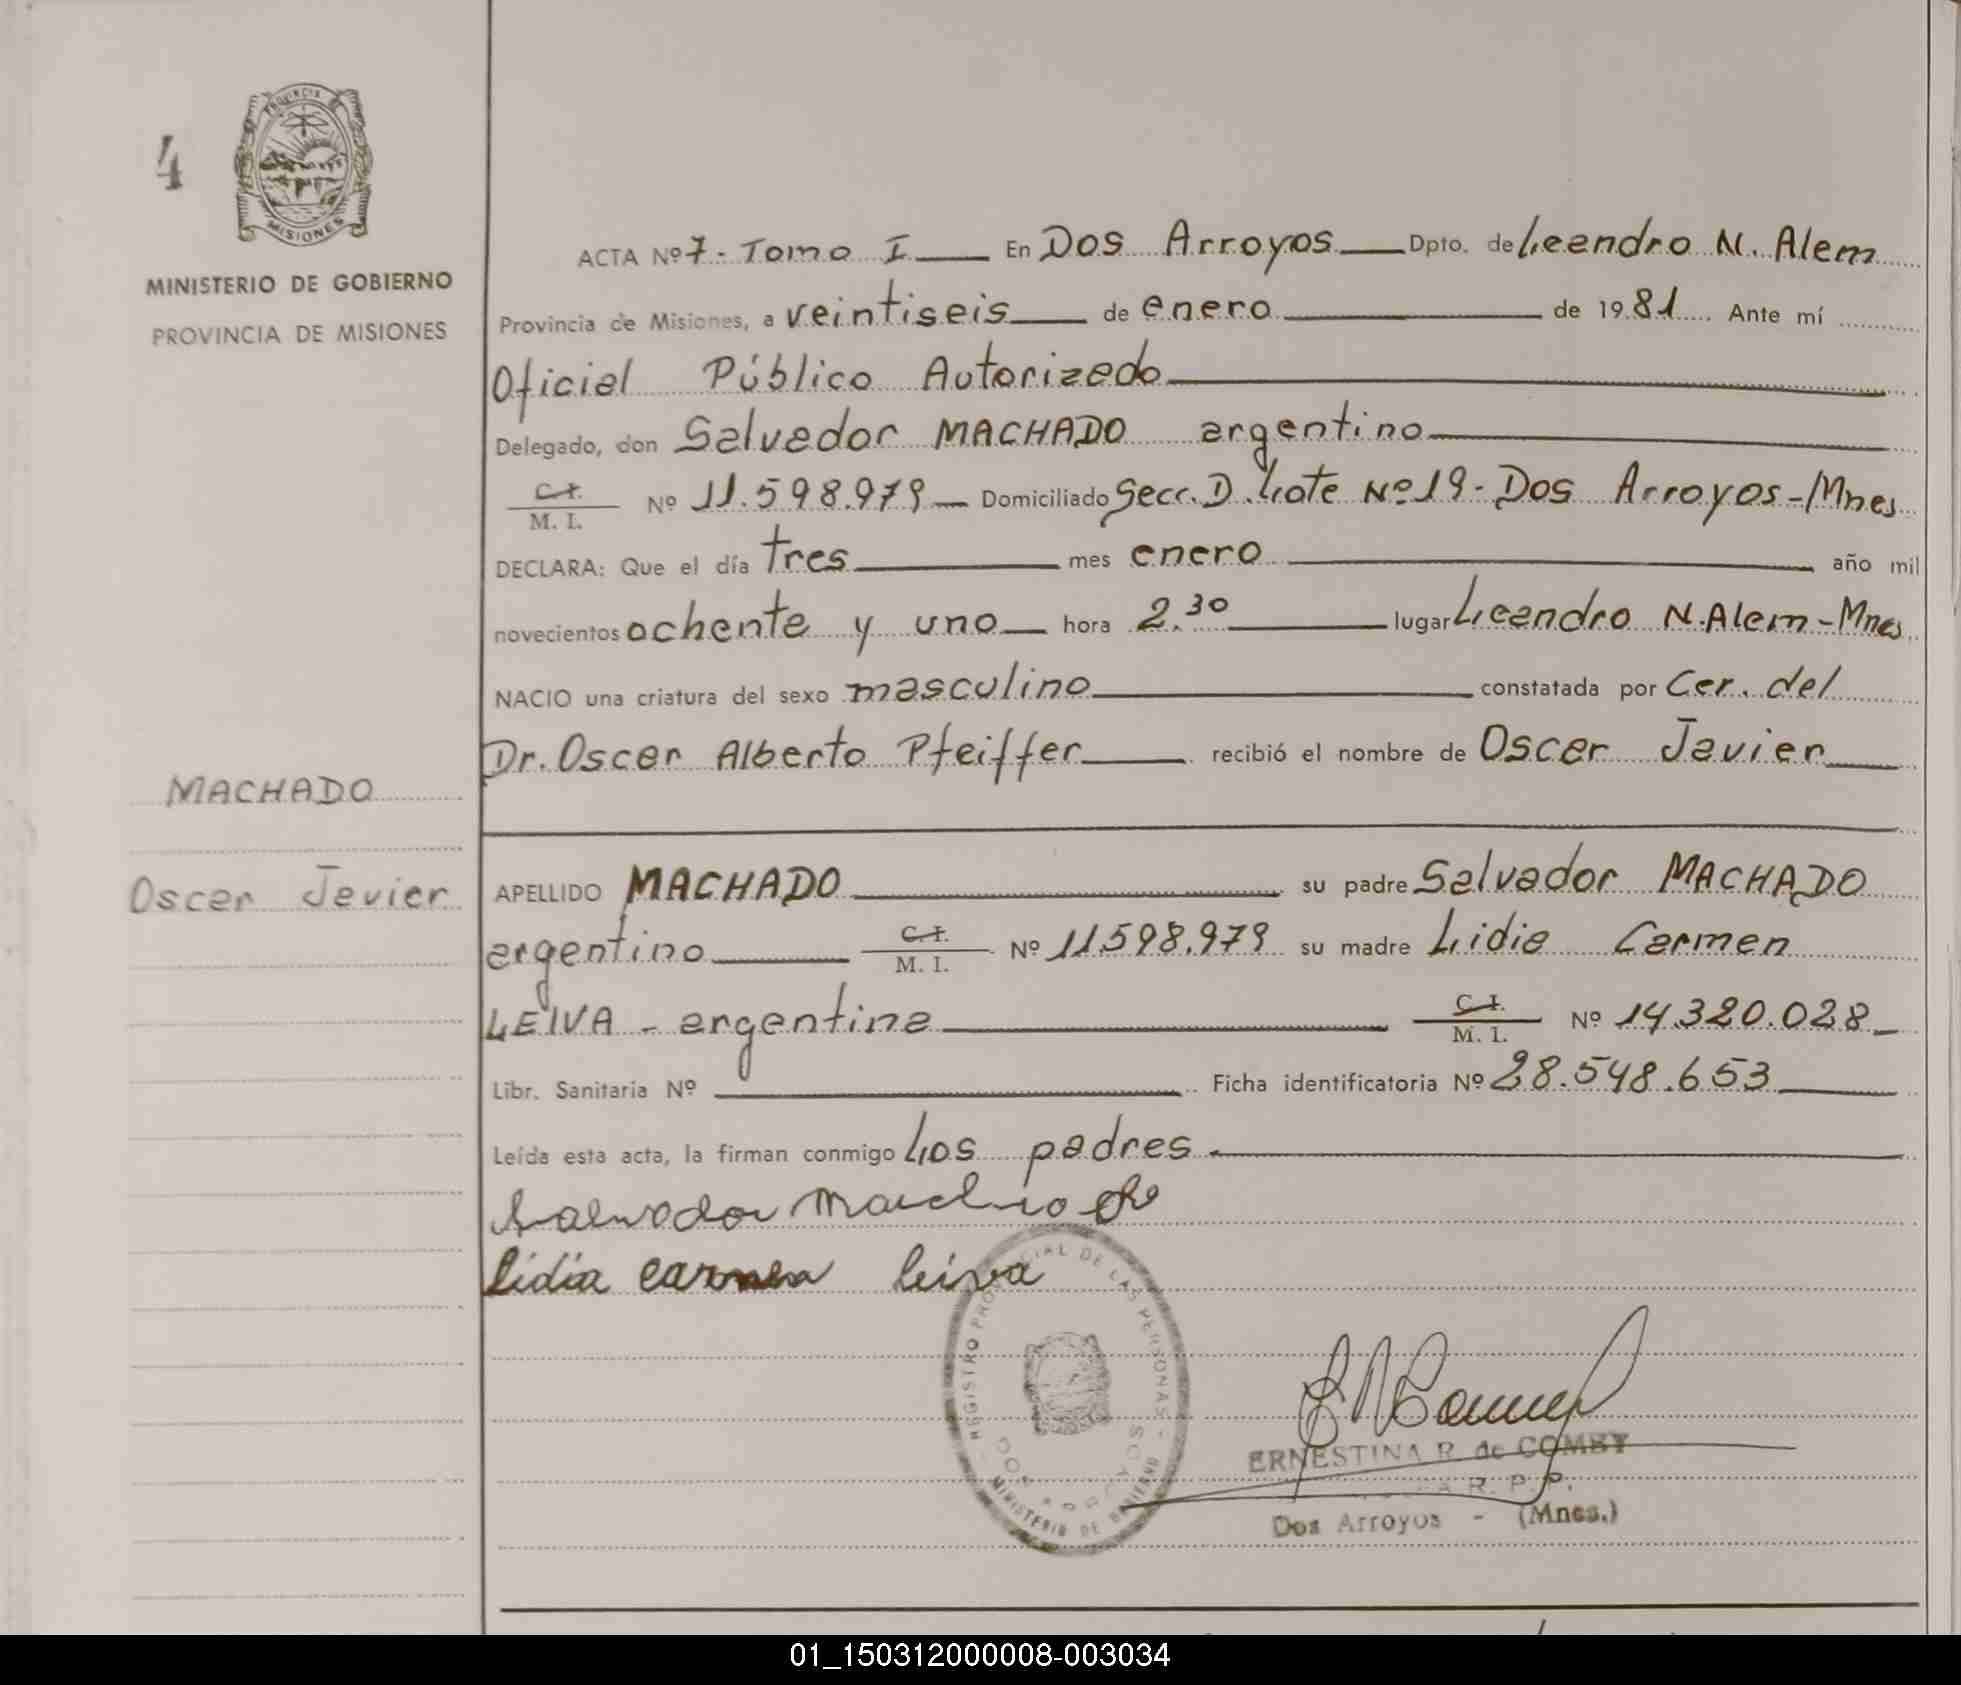 4
PROVINCIA
MISIONES
MINISTERIO DE GOBIERNO
PROVINCIA DE MISIONES
MACHADO
Oscar Javier
ACTA Nº 7 - Tomo I En Dos Arroyos Dpto. de Leandro N. Alem
Provincia de Misiones, a veintiseis de enero de 1981 Ante mí
Oficial Público Autorizado
Delegado, don Salvador MACHADO argentino
C. I.
M. I. Nº 11.598.979 Domiciliado Secc. D. Lote Nº 19 - Dos Arroyos - Mnes
DECLARA: Que el día tres mes enero año mil
novecientos ochenta y uno hora 2.30 lugar Leandro N. Alem - Mnes
NACIO una criatura del sexo masculino constatada por Cer. del
Dr. Oscar Alberto Pfeiffer recibió el nombre de Oscar Javier
APELLIDO MACHADO su padre Salvador MACHADO
argentino C. I. M. I. Nº 11.598.979 su madre Lidia Carmen
LEIVA - argentina C. I. M. I. Nº 14.320.028
Libr. Sanitaria Nº Ficha identificatoria Nº 28.548.653
Leída esta acta, la firman conmigo Los padres
Salvador
Lidia Carmen Leiva
REGISTRO PROVINCIAL DE LAS PERSONAS
DOS ARROYOS
MINISTERIO DE GOBIERNO
ERNESTINA R. de COMBY
R. P. P.
Dos Arroyos - (Mnes.)
01_150312000008-003034